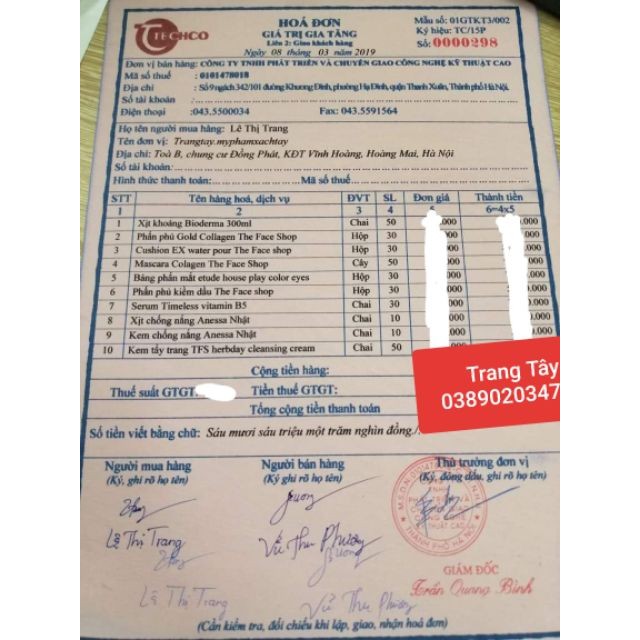 TECHCO
HOÁ ĐƠN
GIÁ TRỊ GIA TĂNG
Liên 2: Giao khách hàng
Ngày 08 tháng 03 năm 2019
Mẫu số: 01GTKT3/002
Ký hiệu: TC/15P
Số: 0000298
Đơn vị bán hàng: CÔNG TY TNHH PHÁT TRIỂN VÀ CHUYỂN GIAO CÔNG NGHỆ KỸ THUẬT CAO
Mã số thuế : 0101478018
Địa chỉ : Số 9 ngách 342/101 đường Khương Đình, phường Hạ Đình, quận Thanh Xuân, Thành phố Hà Nội.
Số tài khoản :
Điện thoại :043.5500034 Fax: 043.5591564
Họ tên người mua hàng: Lê Thị Trang
Tên đơn vị: Trangtay.myphamxachtay
Địa chỉ: Toà B, chung cư Đồng Phát, KĐT Vĩnh Hoàng, Hoàng Mai, Hà Nội
Số tài khoản:
Hình thức thanh toán: Mã số thuế:
STT Tên hàng hoá, dịch vụ ĐVT SL Đơn giá Thành tiền
1 2 3 4 6=4x5
1 Xịt khoáng Bioderma 300ml Chai 50 .000 .000
2 Phấn phủ Gold Collagen The Face Shop Hộp 30 .000 .000
3 Cushion EX water pour The Face shop Hộp 30 .000 .000
4 Mascara Colagen The Face Shop Cây 50 .000 .000
5 Bảng phấn mắt etude house play color eyes Hộp 30 .000 .000
6 Phấn phủ kiềm dầu The Face shop Hộp 30 .000 .000
7 Serum Timeless vitamin B5 Chai 30 .000 .000
8 Xịt chống nắng Anessa Nhật Chai 10 .000 .000
9 Kem chống nắng Anessa Nhật Chai 10 .000 .000
10 Kem tẩy trang TFS herbday cleansing cream Chai 50
Cộng tiền hàng:
Thuế suất GTGT. Tiền thuế GTGT:
Tổng cộng tiền thanh toán
Trang Tây
0389020347
Số tiền viết bằng chữ: Sáu mươi sáu triệu một trăm nghìn đồng./.
Người mua hàng Người bán hàng Thủ trưởng đơn vị
(Ký, ghi rõ họ tên) (Ký ghi rõ họ tên) (Ký, đóng dấu, ghi rõ họ tên)
Lê Thị Trang Vũ Thu Phương
Lê Thị Trang Vũ Thu Phương
THÀNH PHỐ HÀ NỘI
GIÁM ĐỐC
Trần Quang Bình
(Cần kiểm tra, đối chiếu khi lập, giao, nhận hoá đơn)